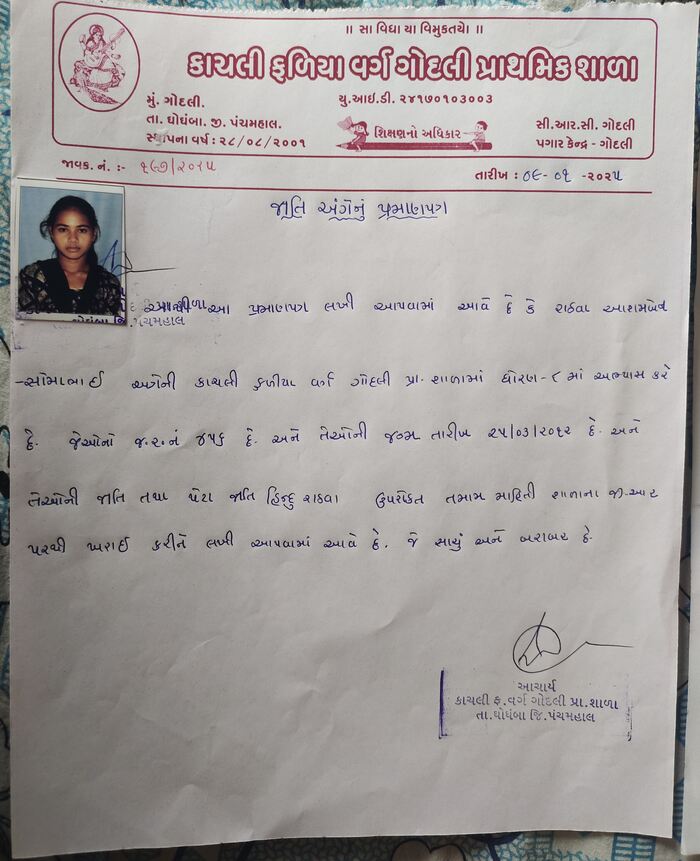 ॥ સા વિદ્યા યા વિમુકતયે। ॥
કાચલી ફળિયા વર્ગ ગોદલી પ્રાથમિક શાળા
મું. ગોદલી.
યુ.આઇ.ડી. ૨૪૧૭૦૧૦૩૦૦૩
તા. ઘોઘંબા. જી. પંચમહાલ.
સ્થાપના વર્ષ : ૨૮/૦૮/૨૦૦૧
શિક્ષણનો અધિકાર
સી.આર.સી. ગોદલી
પગાર કેન્દ્ર - ગોદલી
જાવક. નં. :- ૧૯૭/૨૦૨૫
તારીખ : ૦૯-૦૧-૨૦૨૫
જાતિ અંગેનું પ્રમાણપત્ર
આ પ્રમાણપત્ર લખી આપવામાં આવે છે કે રાઠવા
પ્રા. શાળા
ઘોઘંબા જિ.પંચમહાલ
-સોમાભાઈ અંગેની કાચલી ફળીયા વર્ગ ગોદલી પ્રા. શાળામાં ધોરણ-૮ માં અભ્યાસ કરે
છે. જેઓનો જ.ર.નં ૪૫૬ છે. અને તેઓની જન્મ તારીખ ૨૫/૦૩/૨૦૧૨ છે. અને
તેઓની જાતિ તથા પેટા જાતિ હિન્દુ રાઠવા ઉપરોક્ત તમામ માહિતી શાળાના જી.આર
પરથી ખરાઈ કરીને લખી આપવામાં આવે છે. જે સાચું અને બરાબર છે.
આચાર્ય
કાચલી ફ.વર્ગ ગોદલી પ્રા.શાળા
તા.ઘોઘંબા જિ.પંચમહાલ